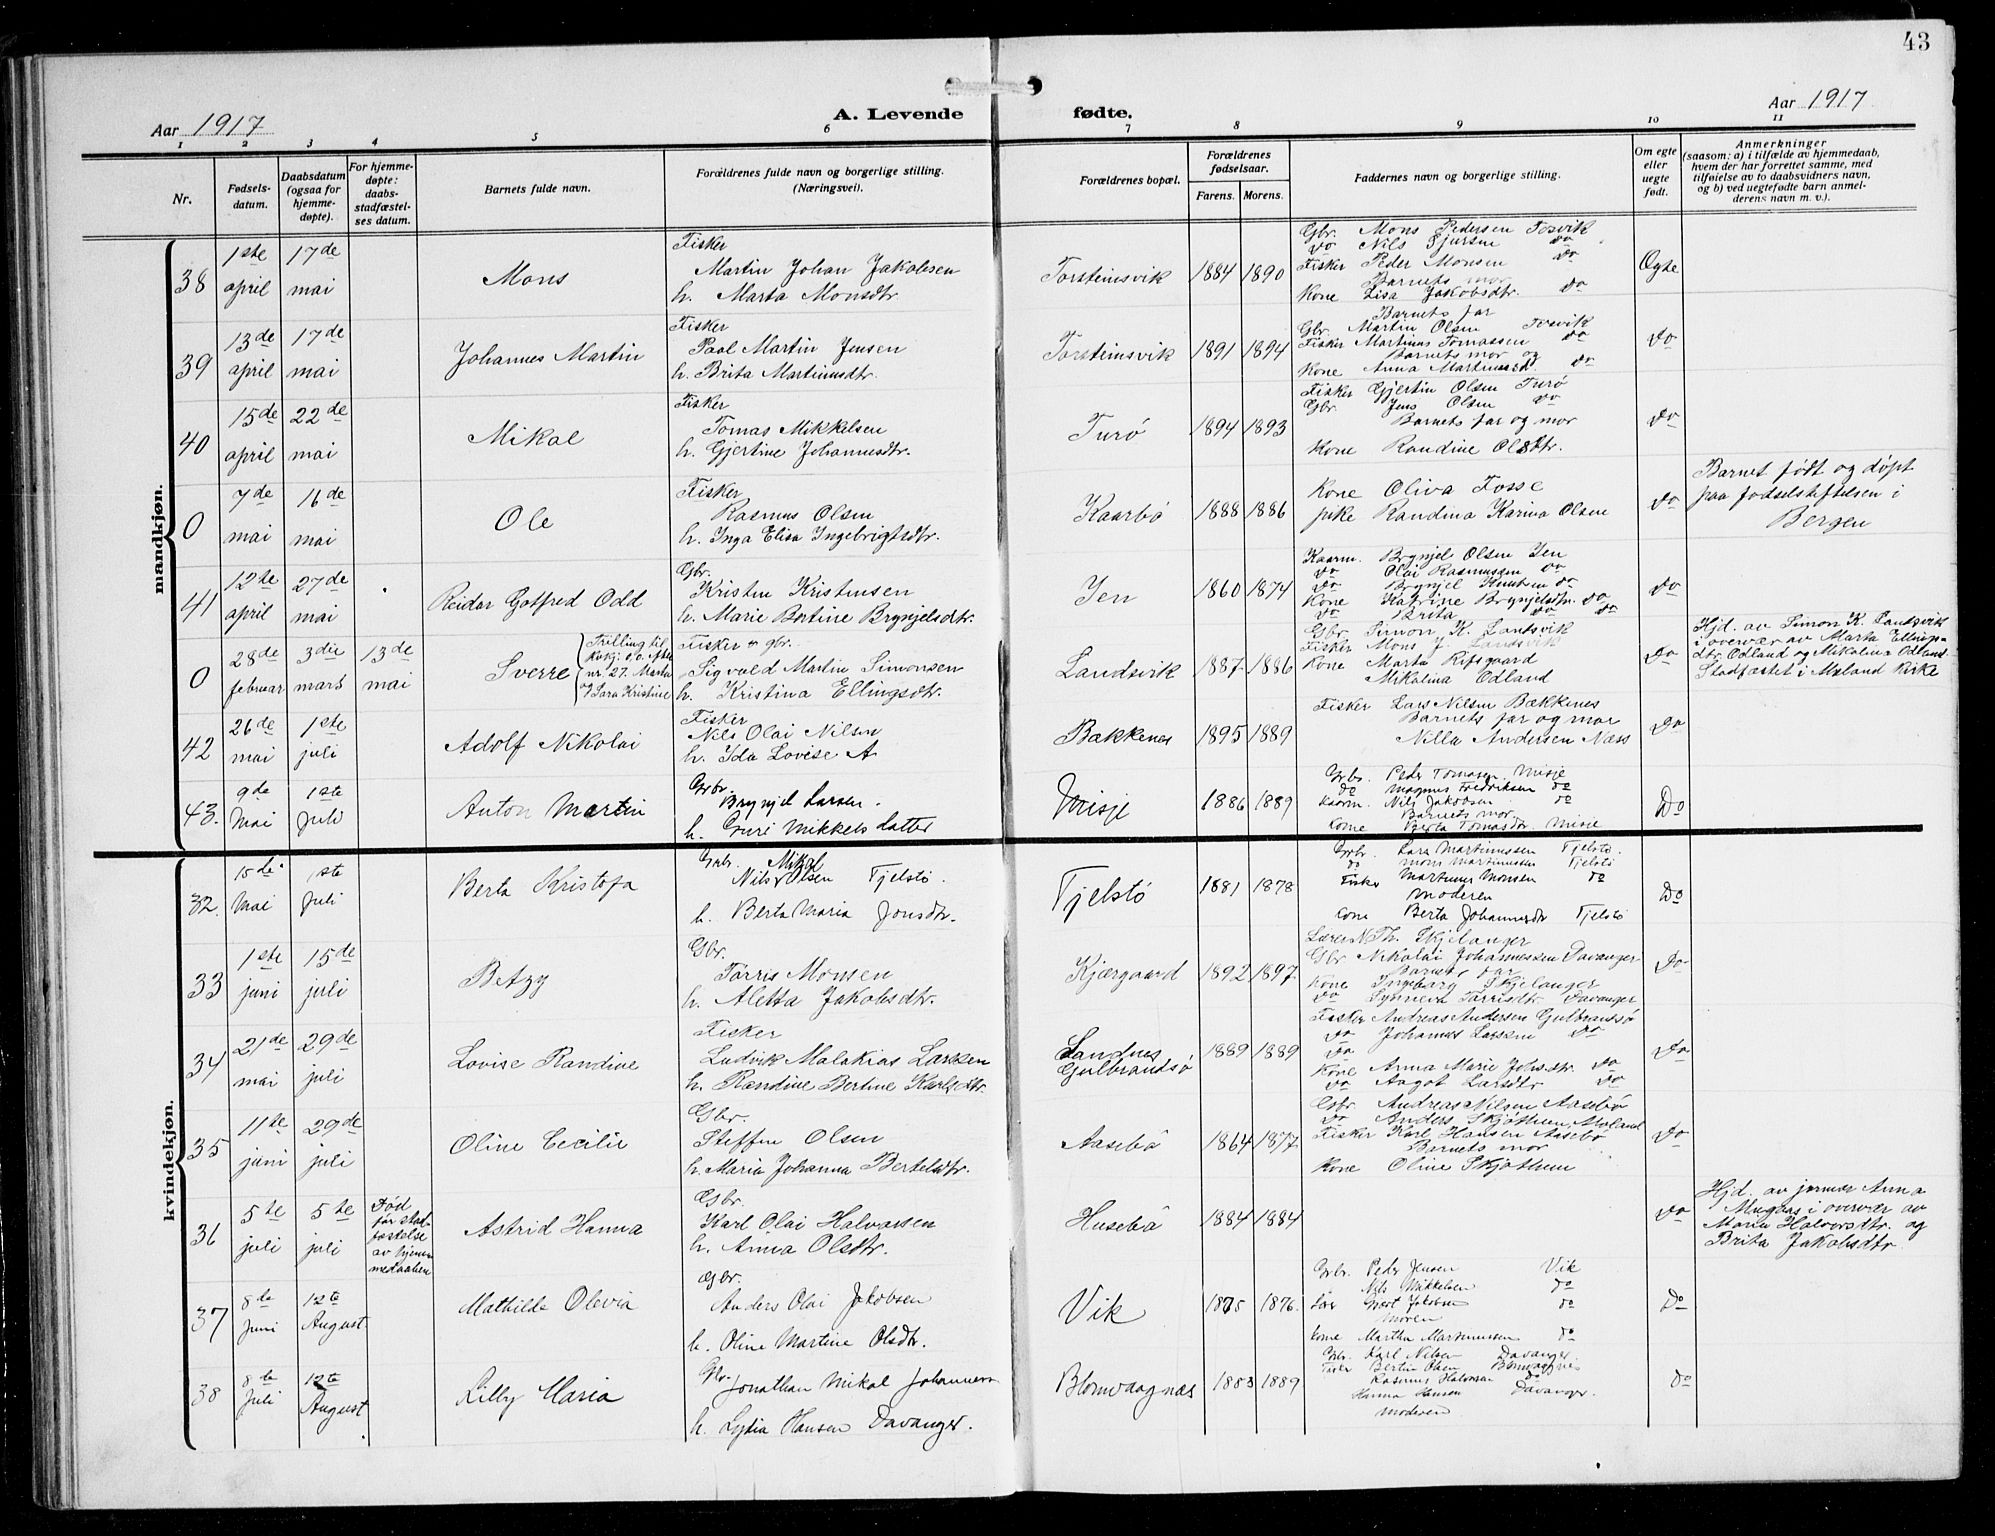 43
Aar 1917
A. Levende fødte.
Aar 1917
1 2 3 4 5 6 7 8 9 10 11
Nr.
Fødsels-
datum.
Daabsdatum
(ogsaa for
hjemme-
døpte).
For hjemme-
døpte:
daabs-
stadfæstel-
ses datum.
Barnets fulde navn.
Forældrenes fulde navn og borgerlige stilling.
(Næringsvei).
Forældrenes bopæl.
Forældrenes
fødselsaar.
Farens. Morens.
Faddernes navn og borgerlige stilling.
Om egte
eller
uegte
født.
Anmerkninger
(saasom: a) i tilfælde av hjemmedaab,
hvem der har forrettet samme, med
tilføielse av to daabsvidners navn,
og b) ved uegtefødte barn anmel-
derens navn m. v.).
mandkjøn.
38
1ste
april
17de
mai
Mons
Fisker
Martin Johan Jakobsen
h. Marta Monsdtr.
Torsteinsvik
1884 1890
Gbr. Mons Pedersen Tosvik
do Nils Gjersen do
Fisker Peder Monsen do
Barnets mor
Kone Lisa Jakobsdtr. do
Egte
39
13de
april
17de
mai
Johannes Martin
Fisker
Paol Martin Jensen
h. Brita Martinusdtr.
Torsteinsvik
1891 1894
Barnets far
Gbr. Martin Olsen Tosvik
Fisker Martinus Tomassen do
Barnets mor og
Kone Anna Martinusd. do
do
40
15de
april
22de
mai
Mikal
Fisker
Tomas Mikkelsen
h. Gjertine Johannesdtr.
Turö
1894 1893
Fisker Gjertin Olsen Turö
Gbr. Jens Olsen do
Barnets far og mor
Kone Randine Olsdtr.
do
0
7de
mai
16de
mai
Ole
Fisker
Rasmus Olsen
h. Inga Elisa Ingebrigtsdtr.
Kaarbö
1888 1886
Kone Oliva Fosse
pike Randina Karina Olsen
do
Barnet født og døpt
paa fødselstiftelsen i
Bergen
41
12te
april
27de
mai
Reidar Gotfred Odd
Gbr.
Kristen Kristensen
h. Marie Bertine Brynjelsdtr.
Jen
1860 1874
Kaarm. Brynjel Olsen Jen
do Olai Rasmussen do
do Brynjel Knutsen do
Kone Katrine Brynjelsdtr. do
do Brita do do
do
0
28de
februar
3die
mars
13de
mai
Sverre
Trilling til
nr. 27. Marta
og Sara Kristine
Fisker og gbr.
Sigvald Martin Simonsen
h. Kristina Ellingsdtr.
Landsvik
1887 1886
Gbr. Simon K. Landsvik
Fisker Mons J. Landsvik
Kone Marta Ripsgaard
Mikalina Odland
do
Hjd. av Simon K. Landsvik
i overvær av Marta Ellings-
dtr. Odland og Mikalina Odland
Stadfæstet i Mæland Kirke
42
26de
mai
1ste
juli
Adolf Nikolai
Fisker
Nils Olai Nilsen
h. Ida Lovise A
Bakkenes
1895 1889
Fisker Lars Nilsen Bækkenes
Barnets far og mor
Nilla Andersen Næss
Do
43.
9de
Mai
1ste
Juli
Anton Martin
Grbr.
Brynjel Larsen.
h. Guri Mikkelsdatter
Misje
1886 1889
Grbr. Peder Tomasen Misje
do Magnus Fredriksen do
Kaarm. Nils Jakobsen do
Barnets mor
Kone Berta Tomasdtr Misje
Do
kvindekjøn.
32.
15de
Mai
1ste
Juli
Berta Kristofa
Grbr. Mikal
Nils Olsen Tjelstö.
h. Berta Maria Jonsdtr.
Tjelstö
1881 1878
Grbr. Lars Martinussen Tjelstö.
do Mons Martinussen Tjelstö
Fisker Martinus Monsen do
Moderen
Kone Berta Johannesdtr Tjelstö
Do
33
1ste
juni
15de
juli
Betzy
Gbr.
Torris Monsen
h. Aletta Jakobsdtr.
Kjærgaard
1892 1897
Lærer N. Th. Skjelanger
Gbr Nikolai Johannessen Davanger
Barnets far
Kone Ingeborg Skjelanger
do Synneva Torrisdtr Davanger
Do
34
21de
mai
29de
juli
Lovise Randine
Fisker
Ludvik Malakias Larsen
h. Randine Bertine Karlsdtr.
Sandnes
Gulbrandsö
1889 1889
Fisker Andreas Andersen Gulbransö
do Johannes Larsen do
do
Kone Anna Marie Johsdtr. do
do Aagot Larsdtr do
Do
35
11te
juni
29de
juli
Oline Cecilie
Gbr.
Steffen Olsen
h. Maria Johanna Bertelsdtr.
Aasebö
1864 1877
Gbr. Andreas Nilsen Aasebö
do Anders Skjöthun Mæland
Fisker Karl Hansen Aasebö
Barnets mor
Kone Oline Skjöthun
Do
36
5te
juli
5te
juli
Död
før stad-
fæstelse
av hjem-
medaaben
Astrid Hanna
Gbr.
Karl Olai Halvorsen
h. Anna Olsdtr.
Husebö
1884 1884
do
Hjd. av jormor Anna
i overvær av
Marie Halvorsdtr. og
Brita Jakobsdtr
37
8de
Juni
12te
August
Mathilde Olevia
Gbr.
Anders Olai Jakobsen
h. Oline Martine Olsdtr.
Vik
1875 1876.
Grbr. Peder Jensen Vik
Nils Mikkelsen do
Gjert Jakobsen do
Moren
Kone Martha Martinussen do
Do
38
8de
Juli
12te
August
Lilly Maria
Gbr.
Jonathan Mikal Johannesen
h. Lydia Hansen Davanger.
Blomvaagnæs
1883 1889
Grbr. Karl Nilsen Davanger.
Fisker Bertin Olsen Blomvaagnes
Rasmus Halvorsen do
Hanna Hansen Davanger.
Moderen
Do